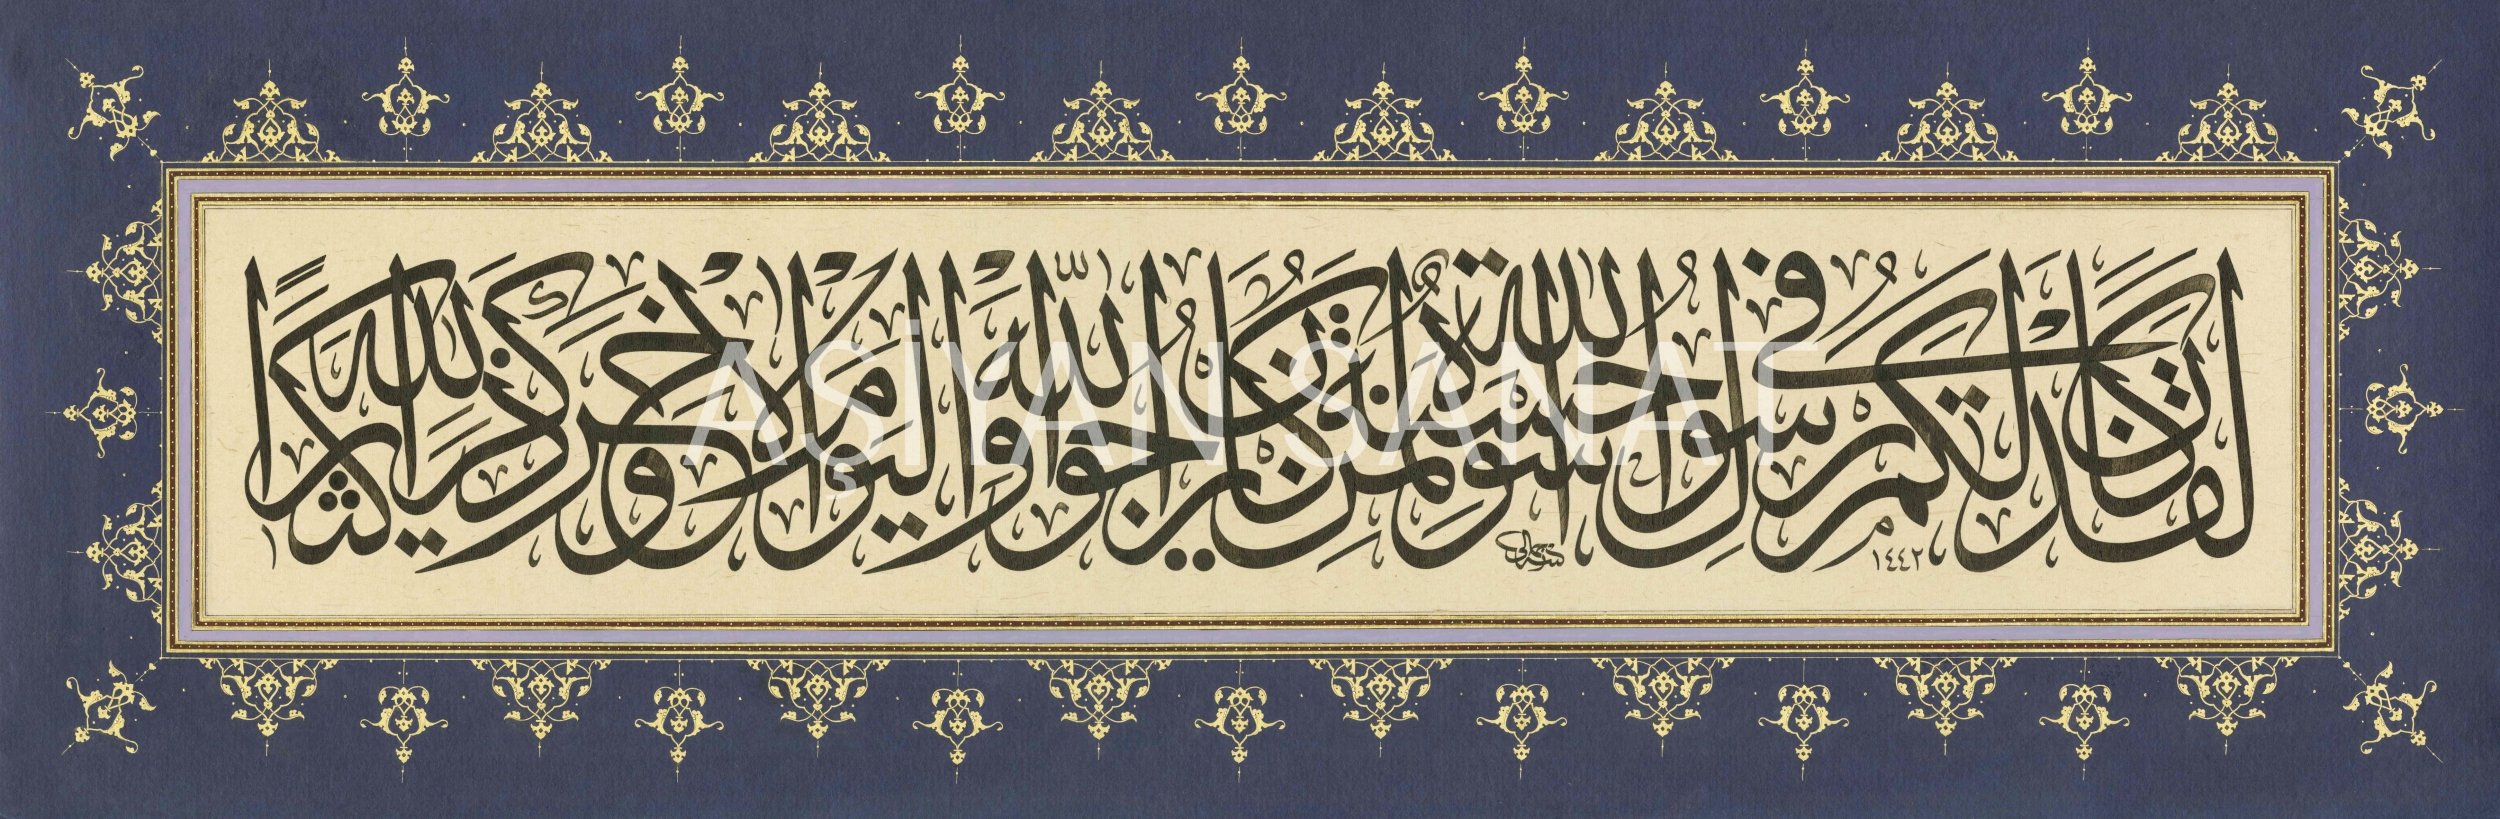 لقد كان لكم في رسول الله اسوة حسنة لمن كان يرجوا الله واليوم الاخر وذكر الله كثيرا
١٤٤٢
AŞİYAN SANAT